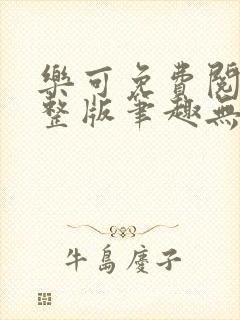 樂可免費閱
整版筆趣無
牛島慶子